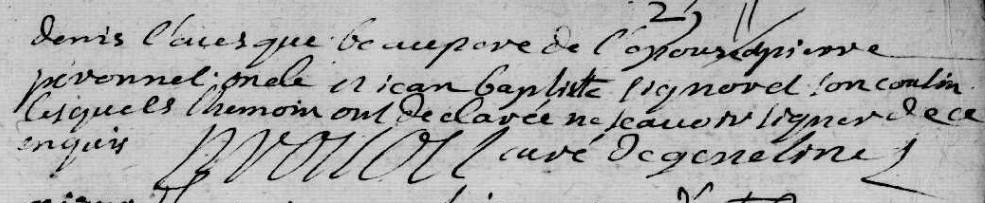 denis l'auesque beaupere de l'epoux, pierre
peronnel oncle et jean baptiste signorel son cousin
lesquels themoin ont declarée ne scauoir signer de ce
enquis curé de geneline